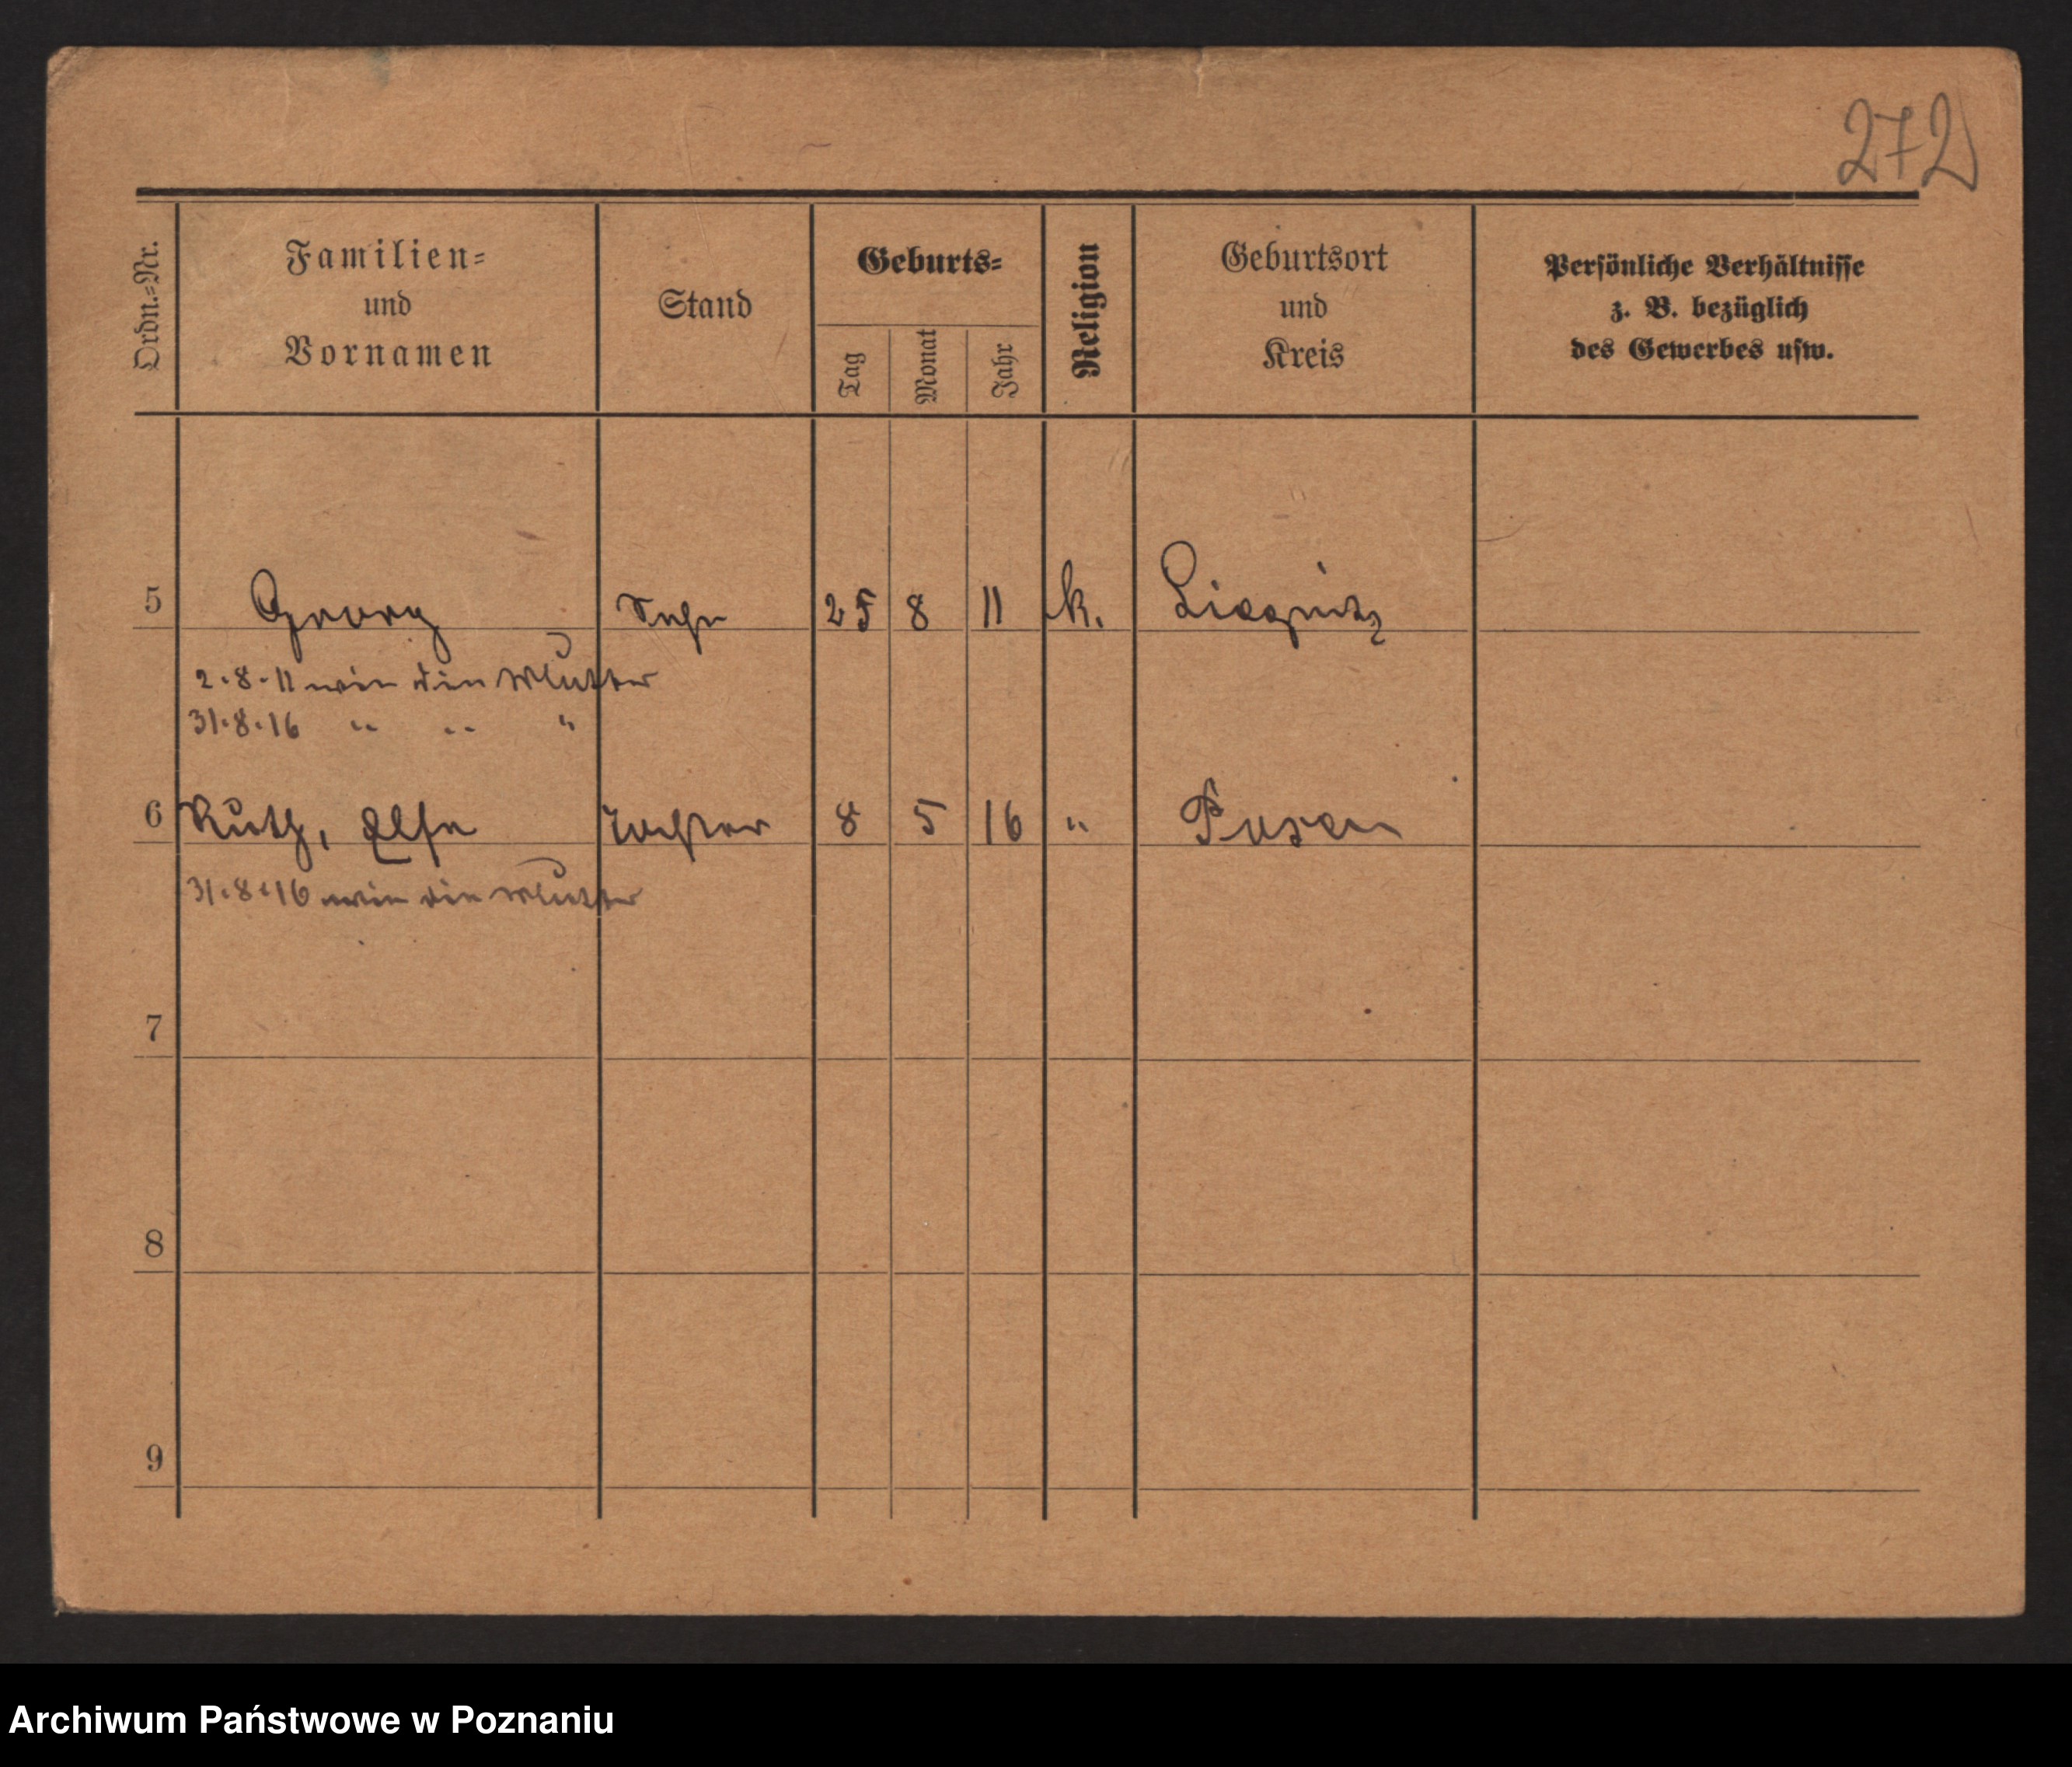 272
Ordn.=Nr.
Familien=
und
Vornamen
Stand
Geburts=
Tag
Monat
Jahr
Religion
Geburtsort
und
Kreis
Persönliche Verhältnisse
z. B. bezüglich
des Gewerbes usw.
5 Georg Sohn 25 8 11 k. Liegnitz
2.8.11 wie die Mutter
31.8.16 " " "
6 Ruth, Else Tochter 8 5 16 " Posen
31.8.16 wie die Mutter
7
8
9
Archiwum Państwowe w Poznaniu